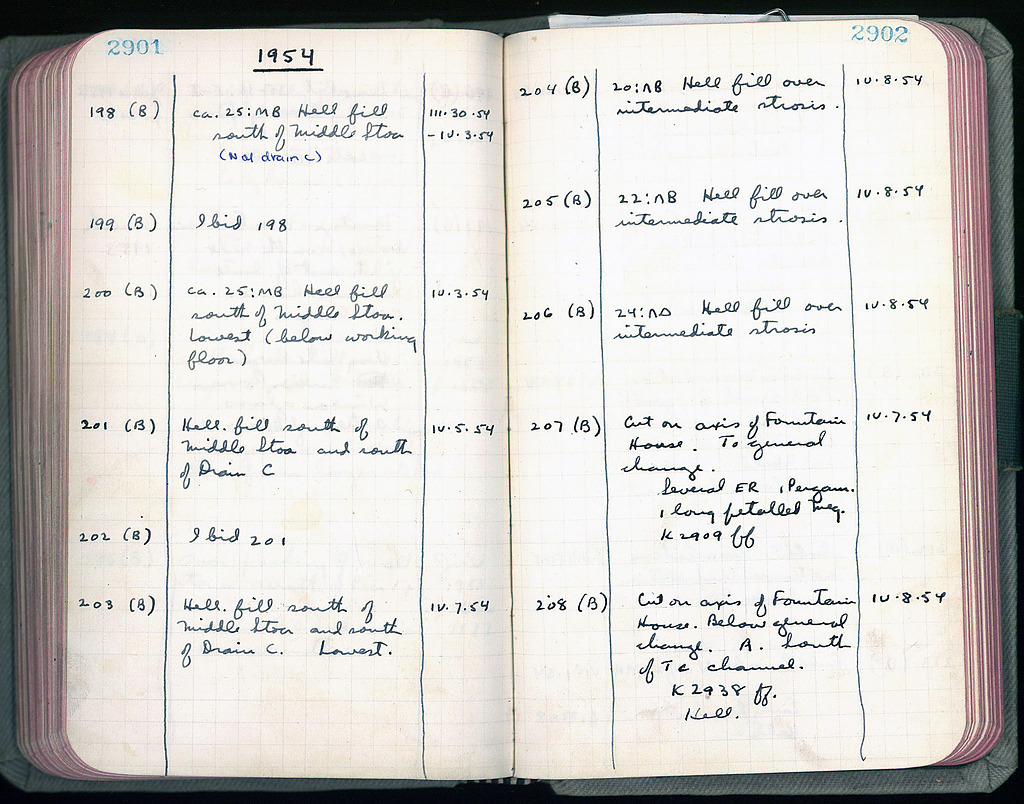 2901
1954
198 (B) ca. 25:MB Hell fill III.30.54
south of Middle Stoa - IV.3.54
(Not drain C)
199 (B) Ibid 198
200 (B) ca. 25:MB Hell fill IV.3.54
south of Middle Stoa.
Lowest (below working
floor)
201 (B) Hell. fill south of IV.5.54
Middle Stoa and south
of Drain C
202 (B) Ibid 201
203 (B) Hell. fill south of IV.7.54
Middle Stoa and south
of Drain C. Lowest.
2902
204 (B) 20:ΛB Hell fill over IV.8.54
intermediate strosis.
205 (B) 22:ΛB Hell fill over IV.8.54
intermediate strosis.
206 (B) 24:ΛΔ Hell fill over IV.8.54
intermediate strosis
207 (B) Cut on axis of Fountain IV.7.54
House. To general
change.
Several ER, 1 Pergam.
1 long petalled Meg.
K 2909 ff
208 (B) Cut on axis of Fountain IV.8.54
House. Below general
change. A. South
of TC channel.
K 2938 ff.
Hell.